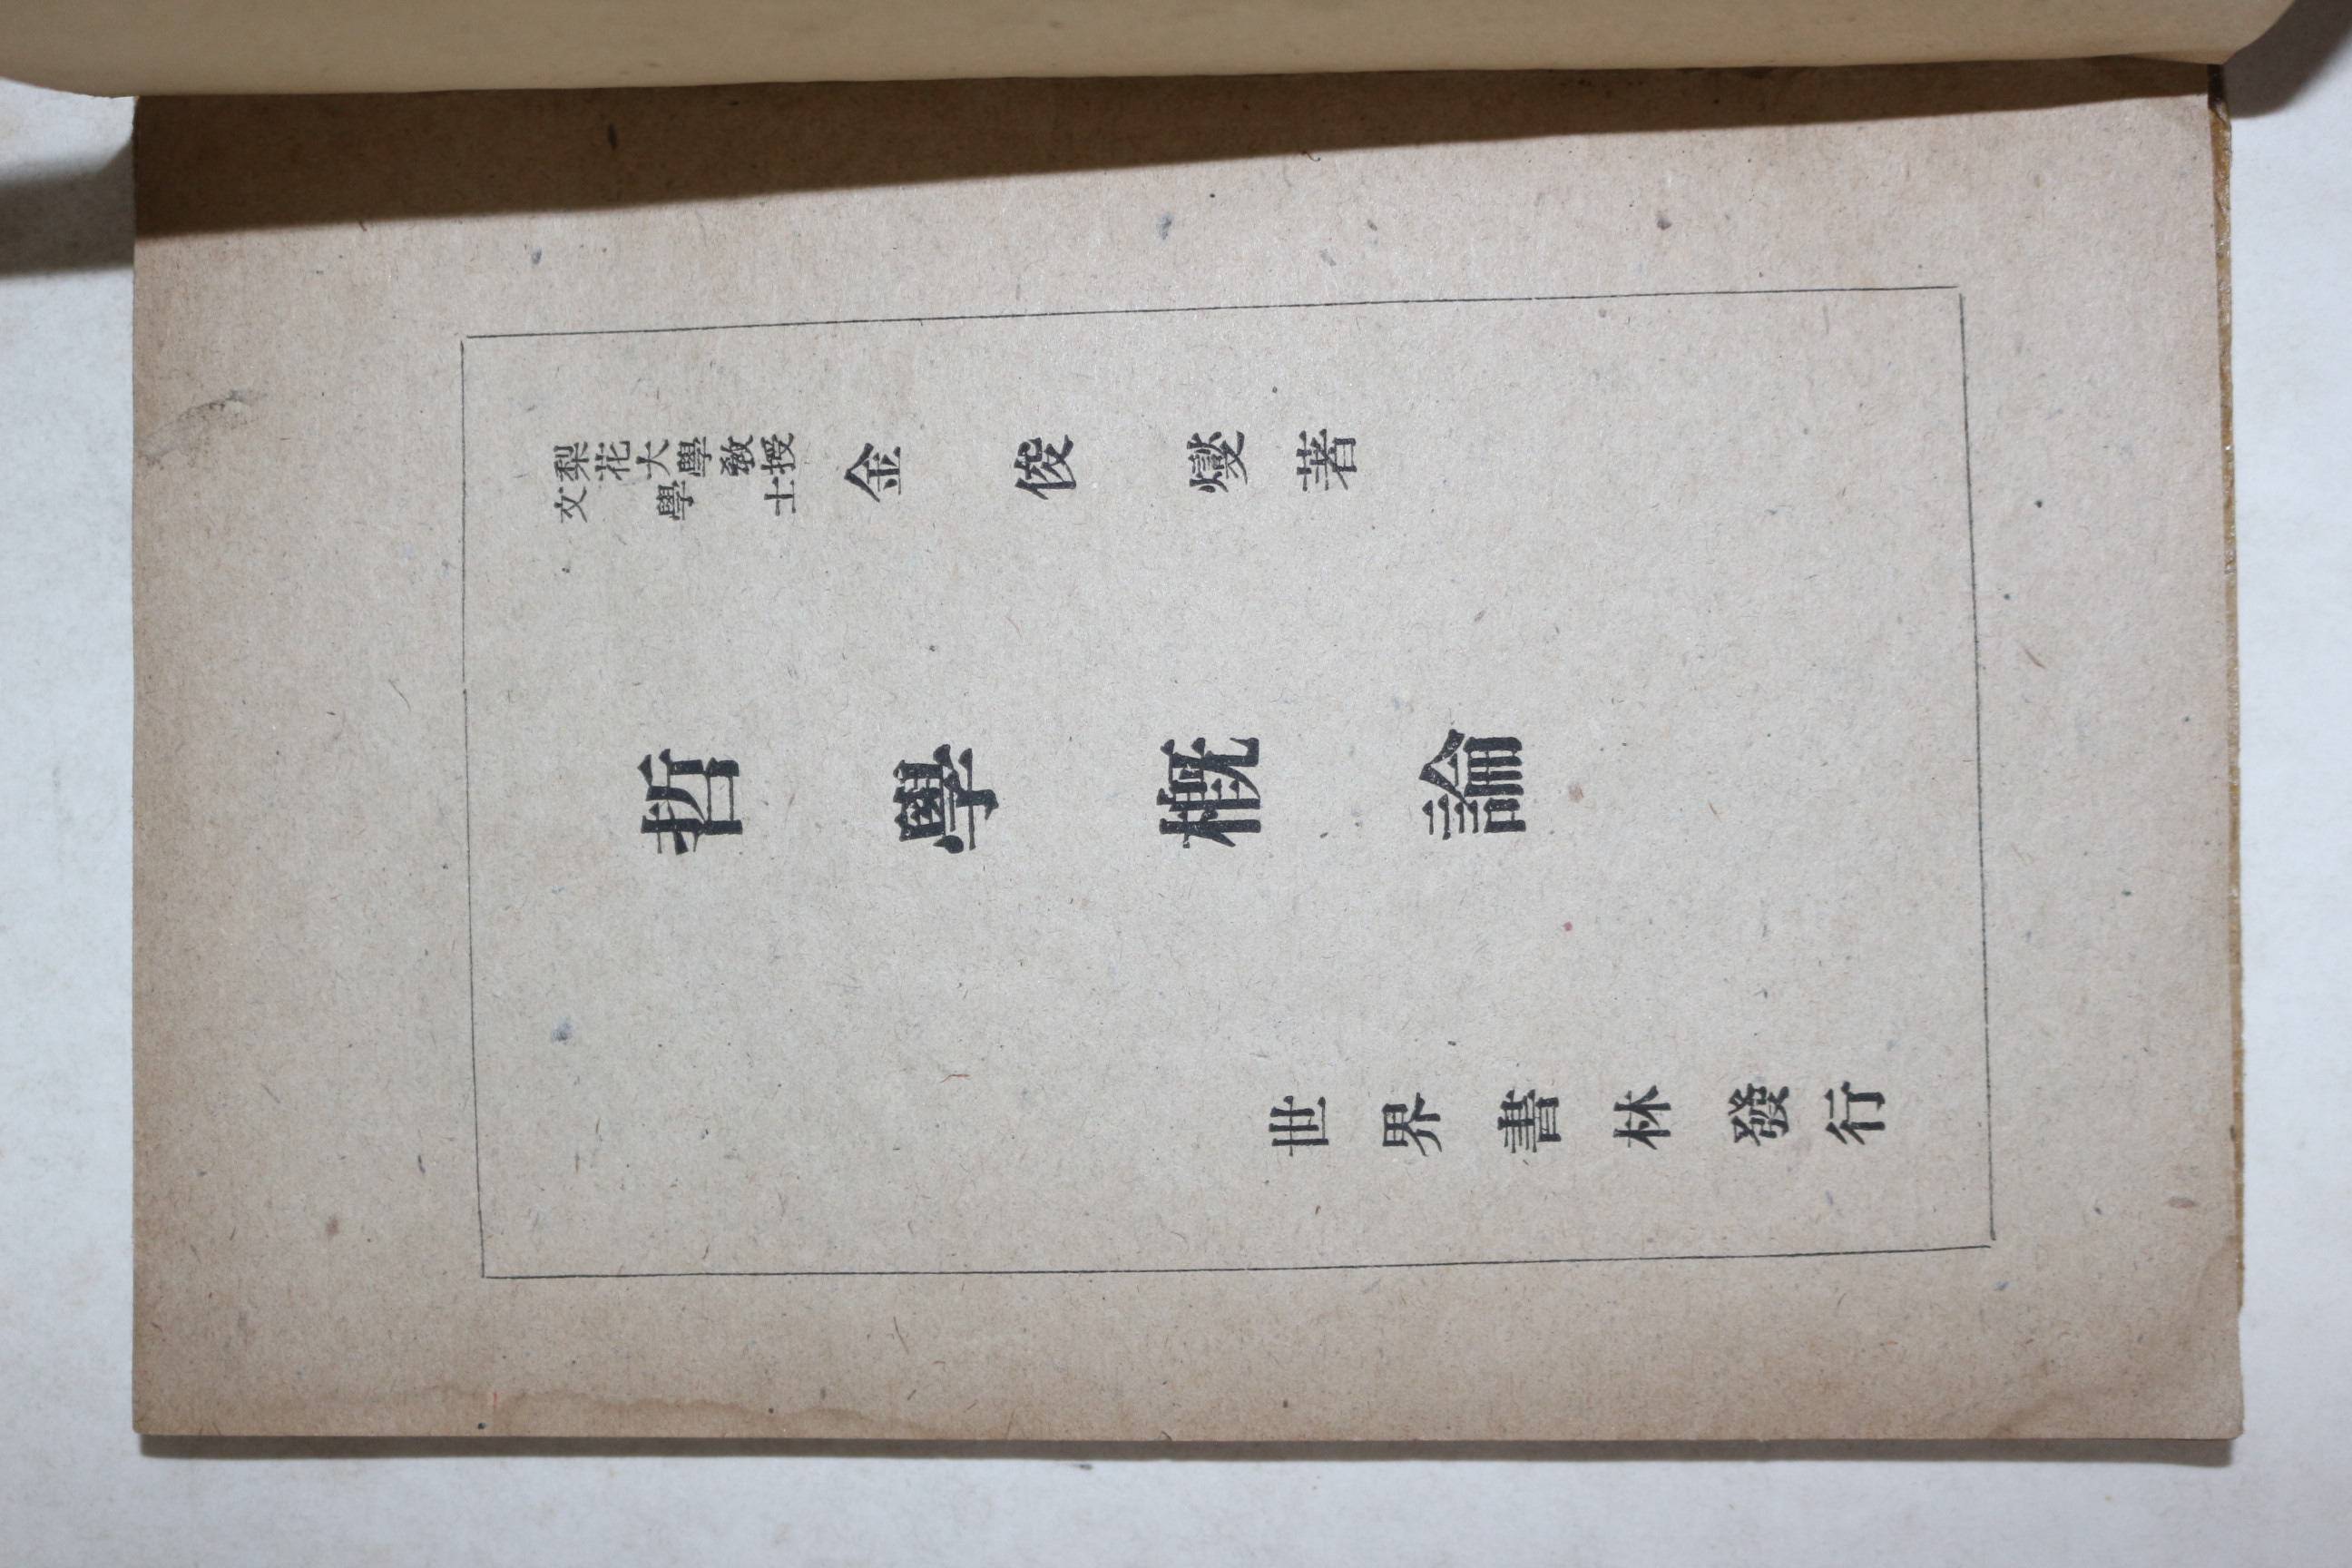 梨花大學敎授
文學士
金俊燮著
哲學概論
世界書林發行